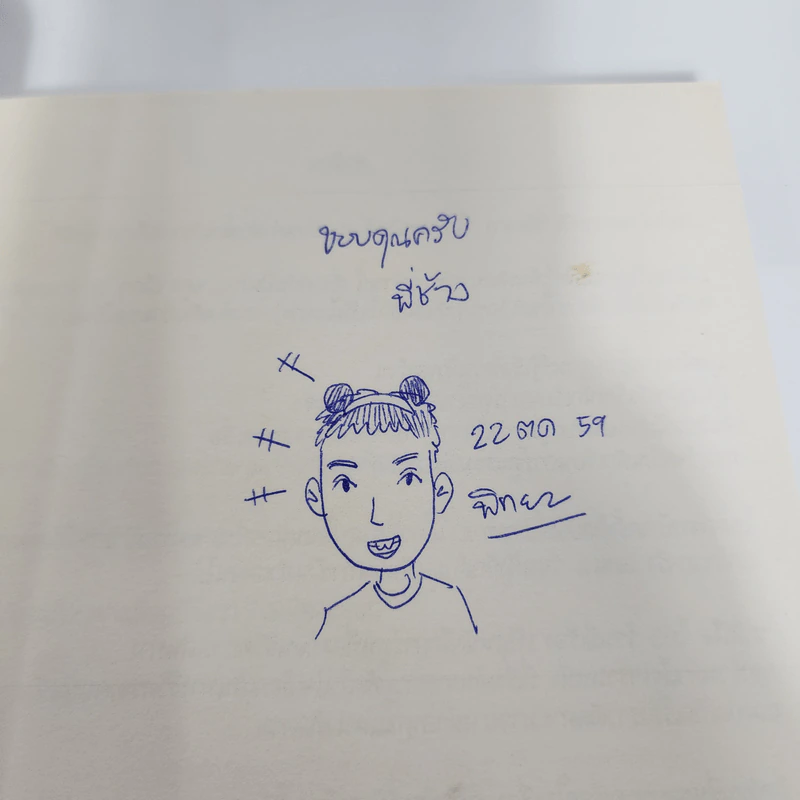 ขอบคุณครับ
พี่ช้าง
22 ตค 59
พิทยา